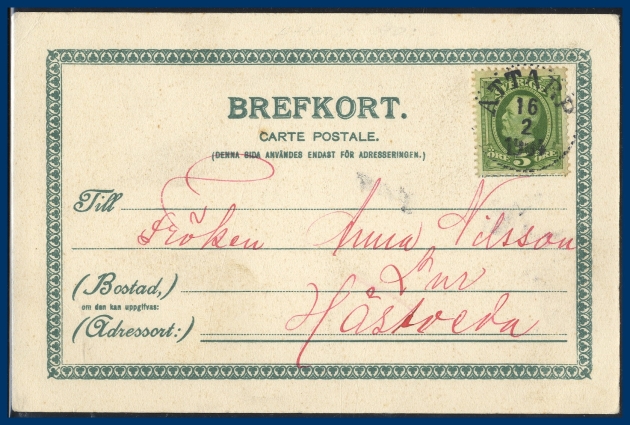 BREFKORT.
CARTE POSTALE.
(DENNA SIDA ANVÄNDES ENDAST FÖR ADRESSERINGEN.)
SVERIGE
ATTARP
16
2
ÖRE 5 ÖRE
Till
Fröken Anna Nilsson
(Bostad,)
om den kan uppgifvas:
Hästveda
(Adressort:)